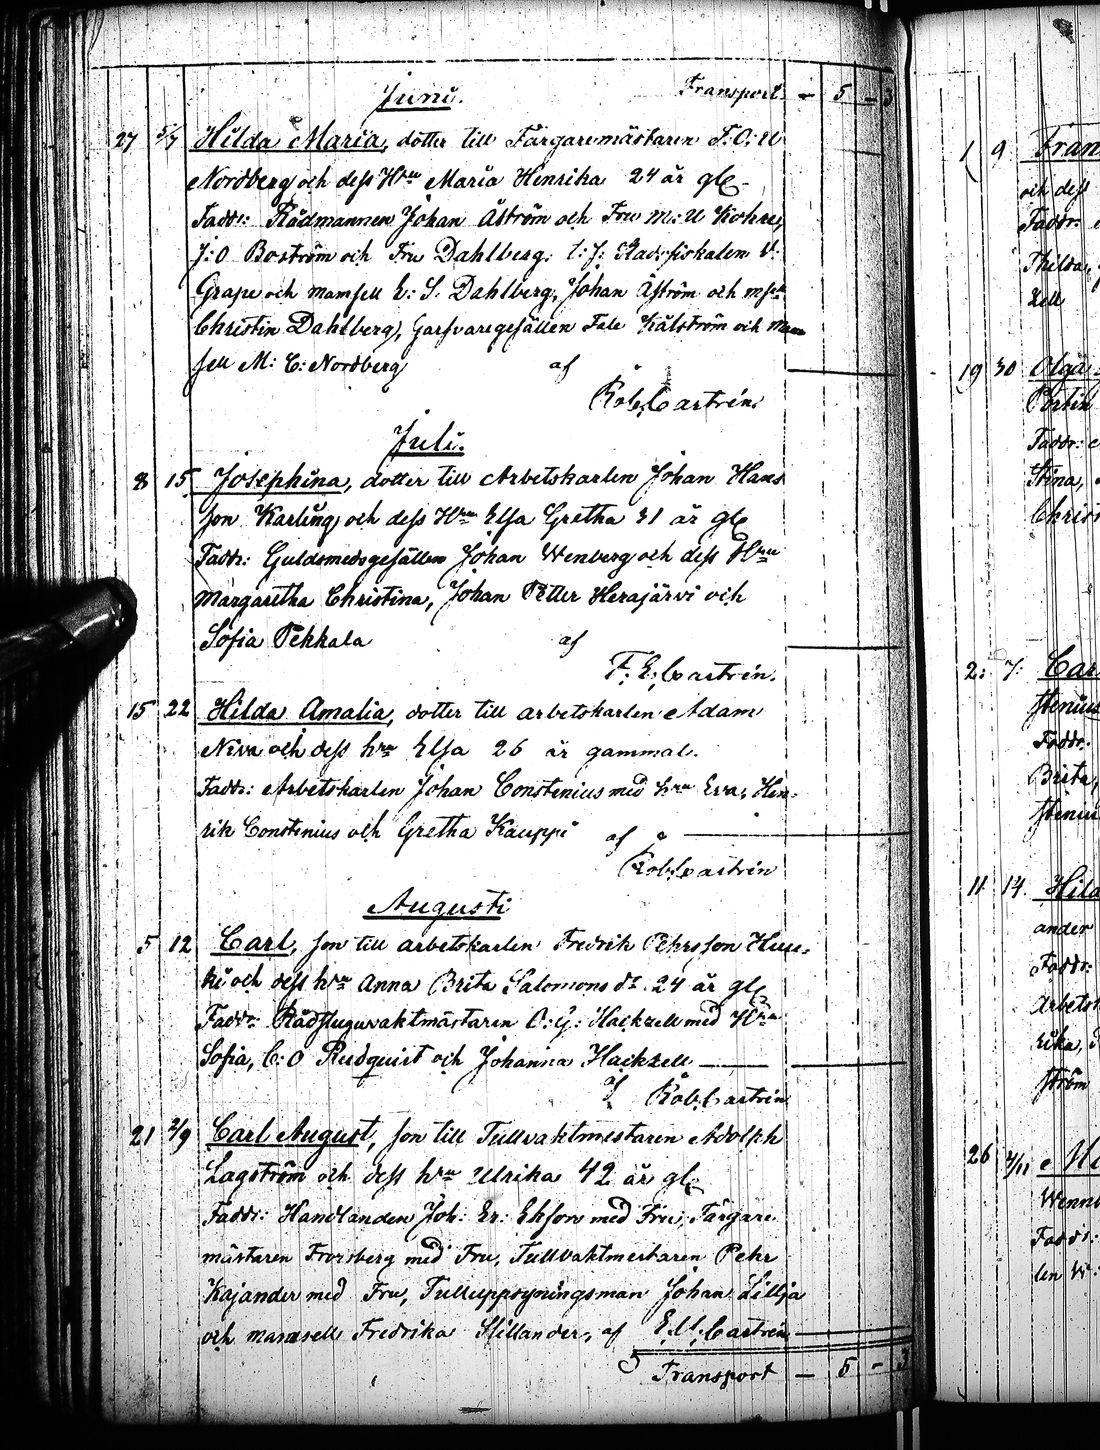 Juni. Transport. – 5 – 3
27 5/7 Hilda Maria, dotter till Färgaremästaren F: O: U
Nordberg och dess Hru Maria Henrika 24 år gl.
Faddr: Rådmannen Johan Åström och Fru M: U
J: O Boström och Fru Dahlberg, t: f: Stadsfiskalen V:
Grape och mamsell E: S. Dahlberg, Johan Åström och msll
Christin Dahlberg, Garfvaregesällen Kålström och Mam
sell M: C: Nordberg af
Rob. Castrén.
Juli.
8 15 Josephina, dotter till Arbetskarlen Johan Hans
son Karling och dess Hru Elsa Gretha 31 år gl
Faddr: Guldsmedsgesällen Johan Wenberg och dess Hru
Margaretha Christina, Johan Petter Herajärvi och
Sofia Pekkala af
F. E. Castrén.
15 22 Hilda Amalia, dotter till arbetskarlen Adam
Niva och dess hru Elsa 26 år gammal.
Faddr: Arbetskarlen Johan Constenius med hru Eva, Hen-
rik Constenius och Gretha Kauppi af
Rob. Castrén
Augusti
5 12 Carl, son till arbetskarlen Fredrik Pehrsson Huu-
ki och dess hru Anna Brita Salomons dr. 24 år gl.
Faddr: Rådstuguvaktmästaren O: G: Hackzell med Hru
Sofia, C: O Rudquist och Johanna Hackzell
af Rob. Castrén
21 2/9 Carl August, son till Tullvaktmestaren Adolph
Lagström och dess hru Ulrika 42 år gl.
Faddr: Handlanden Joh: Er: Ekson med Fru, Färgare
mästaren Forsberg med Fru, Tullvaktmestaren Pehr
Kajander med Fru, Tulluppsyningsman Johan Lillja
och mamsell Fredrika Hillander, af Castrén
Transport – 5 – 3
1 9 Fran
och dess
Faddr:
Thilda,
zell
19 30 Olga
Portin
Faddr:
Stina,
Chris
2: 7: Car
stenius
Faddr:
Brita,
stenius
11 14. Hild
ander
Faddr:
Arbets
rika,
ström
26 2/11
Wenn
Faddr:
len W: